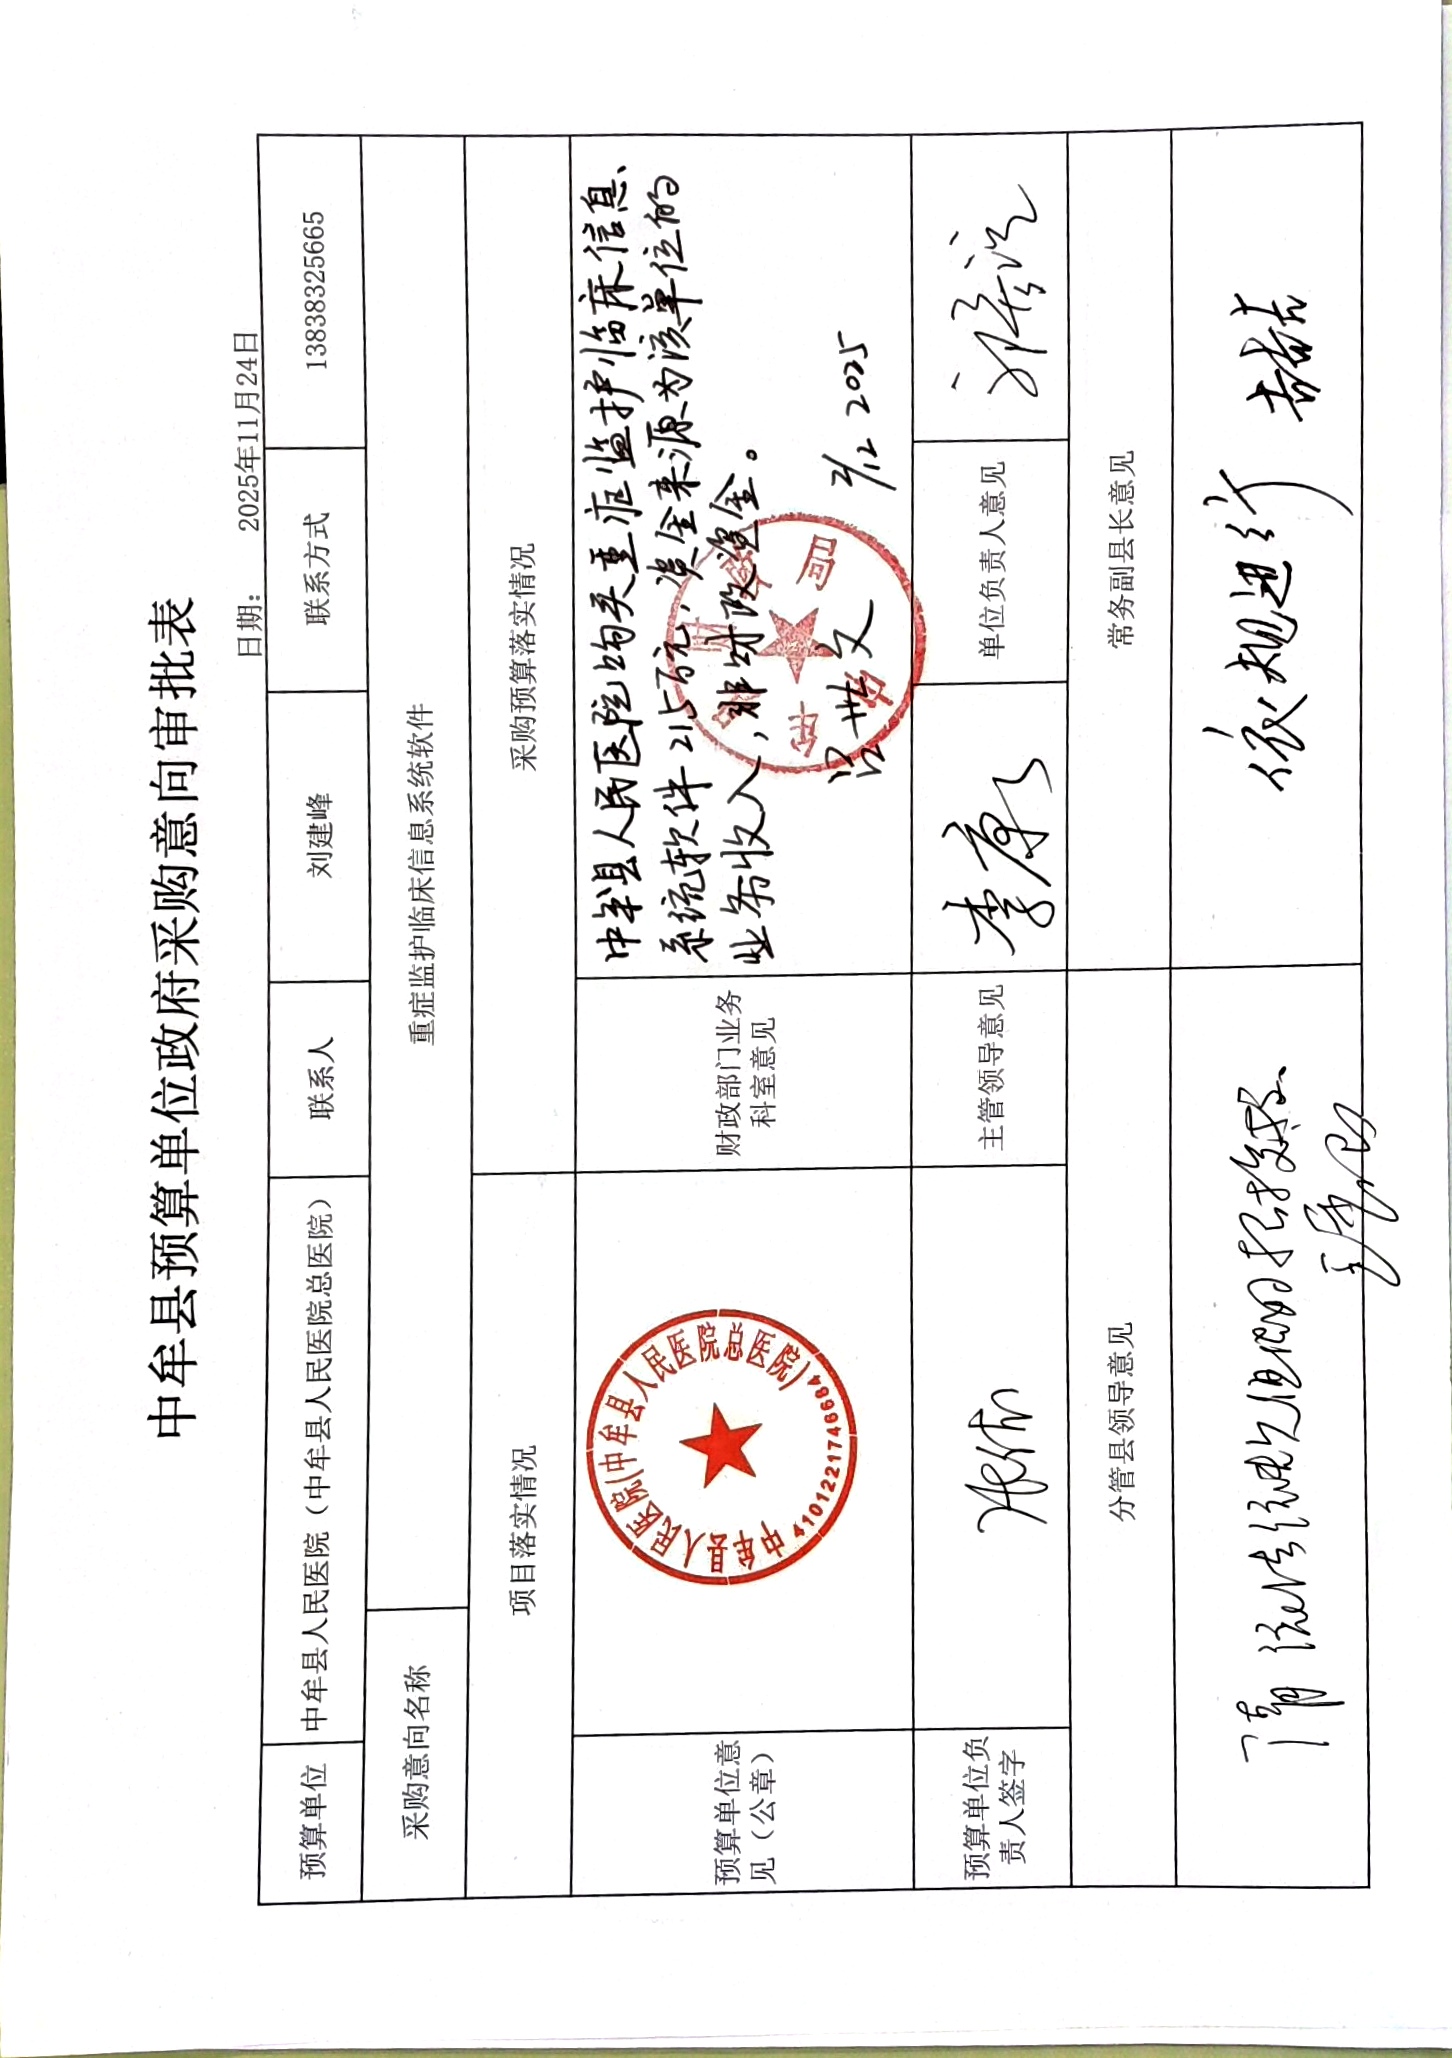 中牟县预算单位政府采购意向审批表
日期： 2025年11月24日
预算单位 中牟县人民医院（中牟县人民医院总医院） 联系人 刘建峰 联系方式 13838325665
采购意向名称 重症监护临床信息系统软件
项目落实情况 采购预算落实情况
预算单位意
见（公章）
中牟县人民医院(中牟县人民医院总医院)
4101221746684
财政部门业务
科室意见
中牟县人民医院购买重症监护临床信息
系统软件215万元，资金来源为该单位的
业务收入，非财政资金。
2/12 2025
预算单位负
责人签字
主管领导意见 李康 单位负责人意见
分管县领导意见 常务副县长意见
依规进行